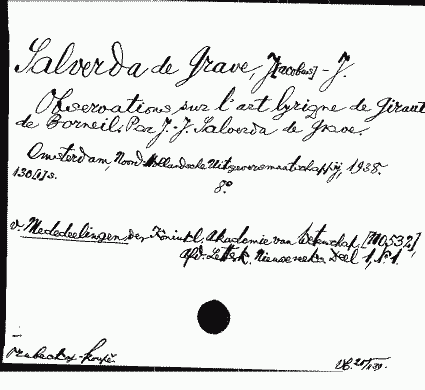 Salverda de Grave, J[acobus]-J.
Observations sur l'art lyrique de Giraut
de Borneil. Par J.-J. Salverda de Grave.
Amsterdam, Noord-Hollandsche Uitgeversmaatschappij, 1938.
130[1] s. 8°
v. Mededeelingen der Koninkl. Akademie van Wetensch. [710,532],
Afd. Letterk. Nieuwe reeks. Deel 1, № 1.